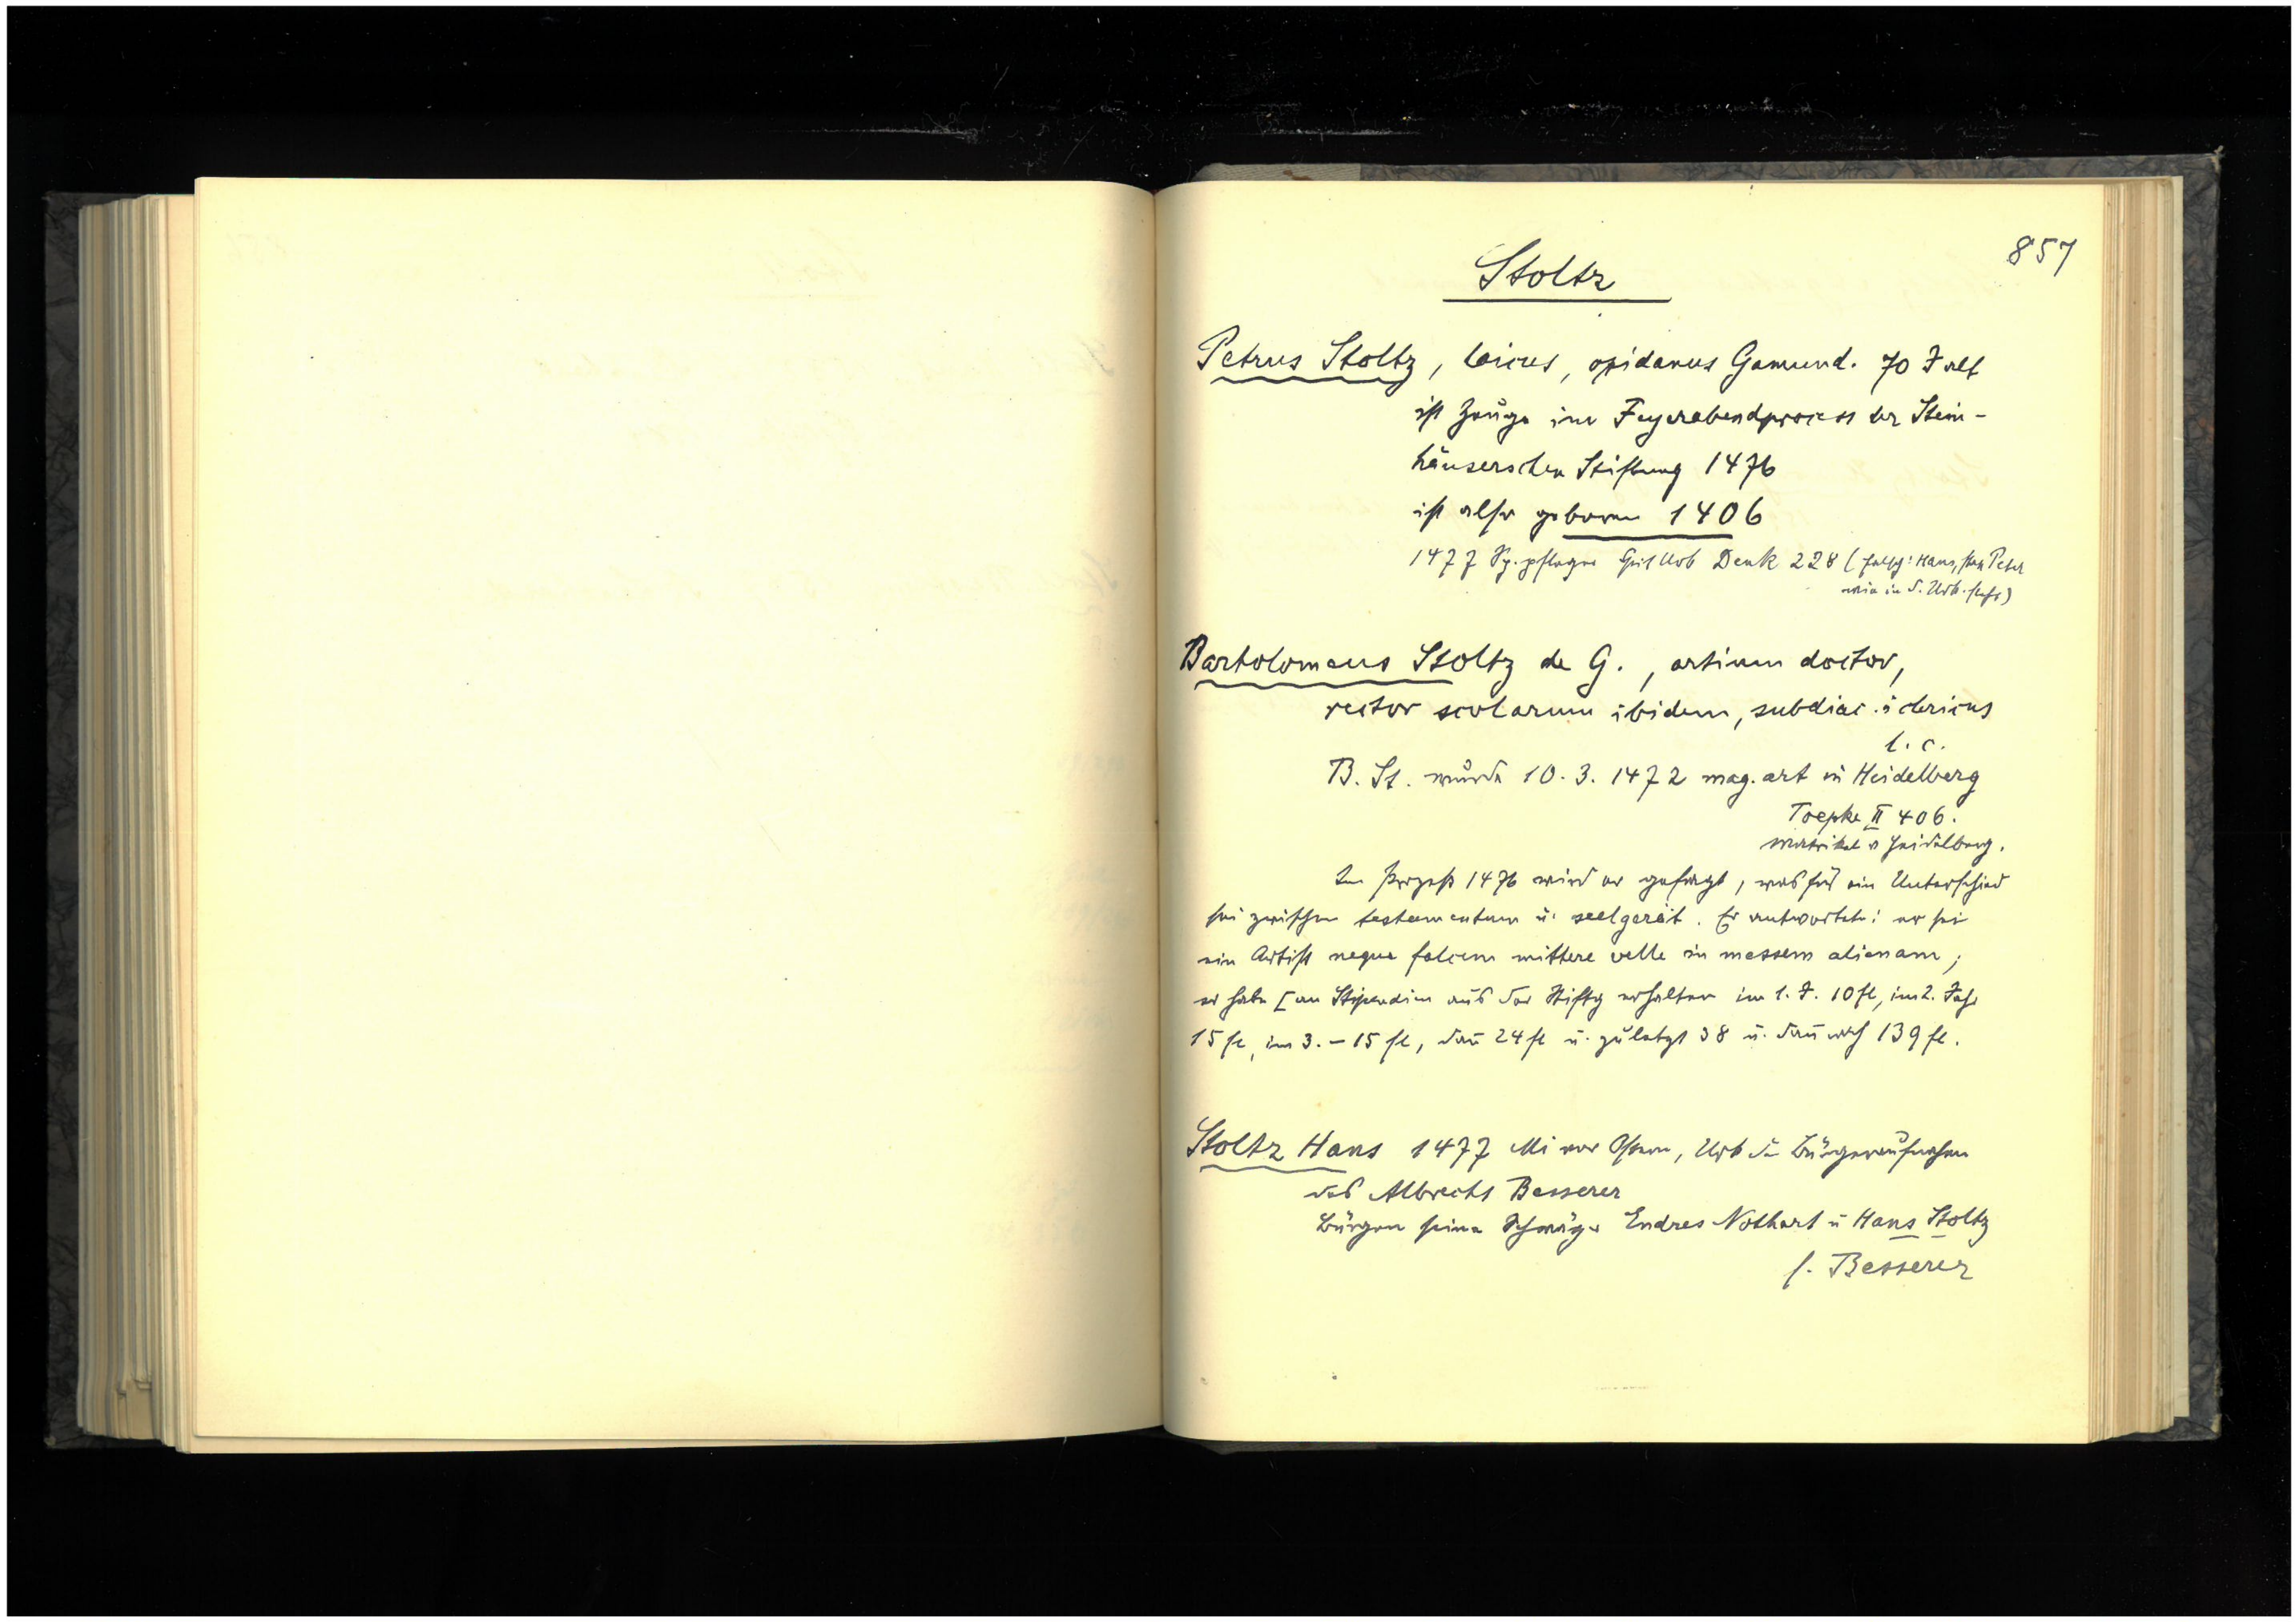 857
Stoltz
Petrus Stoltz, laicus, opidanus Gamund. 70 J alt
ist Zeuge im Feyerabendprocess der Stein-
häuserschen Stiftung 1476
ist also geboren 1406
1477 Sp.pfleger Geistl Urb Denk 228 (fälschl: Hans, statt Peter
wie in d. Urk. steht)
Bartolomeus Stoltz de G., artium doctor,
rector scolarum ibidem, subdiac. clericus
l. c.
B. St. wurde 10. 3. 1472 mag. art in Heidelberg
Toepke II 406.
Matrikel v Heidelberg.
Im Prozeß 1476 wird er gefragt, was für ein Unterschied
sei zwischen testamentum u. seelgerät. Er antwortete: er sei
ein Artist neque falcem mittere velle in messem alienam;
er habe [an Stipendien aus der Stiftg erhalten im 1. J. 10 fl, im 2. Jahr
15 fl, im 3. – 15 fl, dan̄ 24 fl u. zuletzt 38 u. dan̄ noch 139 fl.
Stoltz Hans 1477 Mi vor Ostern, Urk Bürgeraufnahme
des Albrecht Besserer
Bürgen seine Schwäger Endres Nothart u Hans Stoltz
s. Besserer